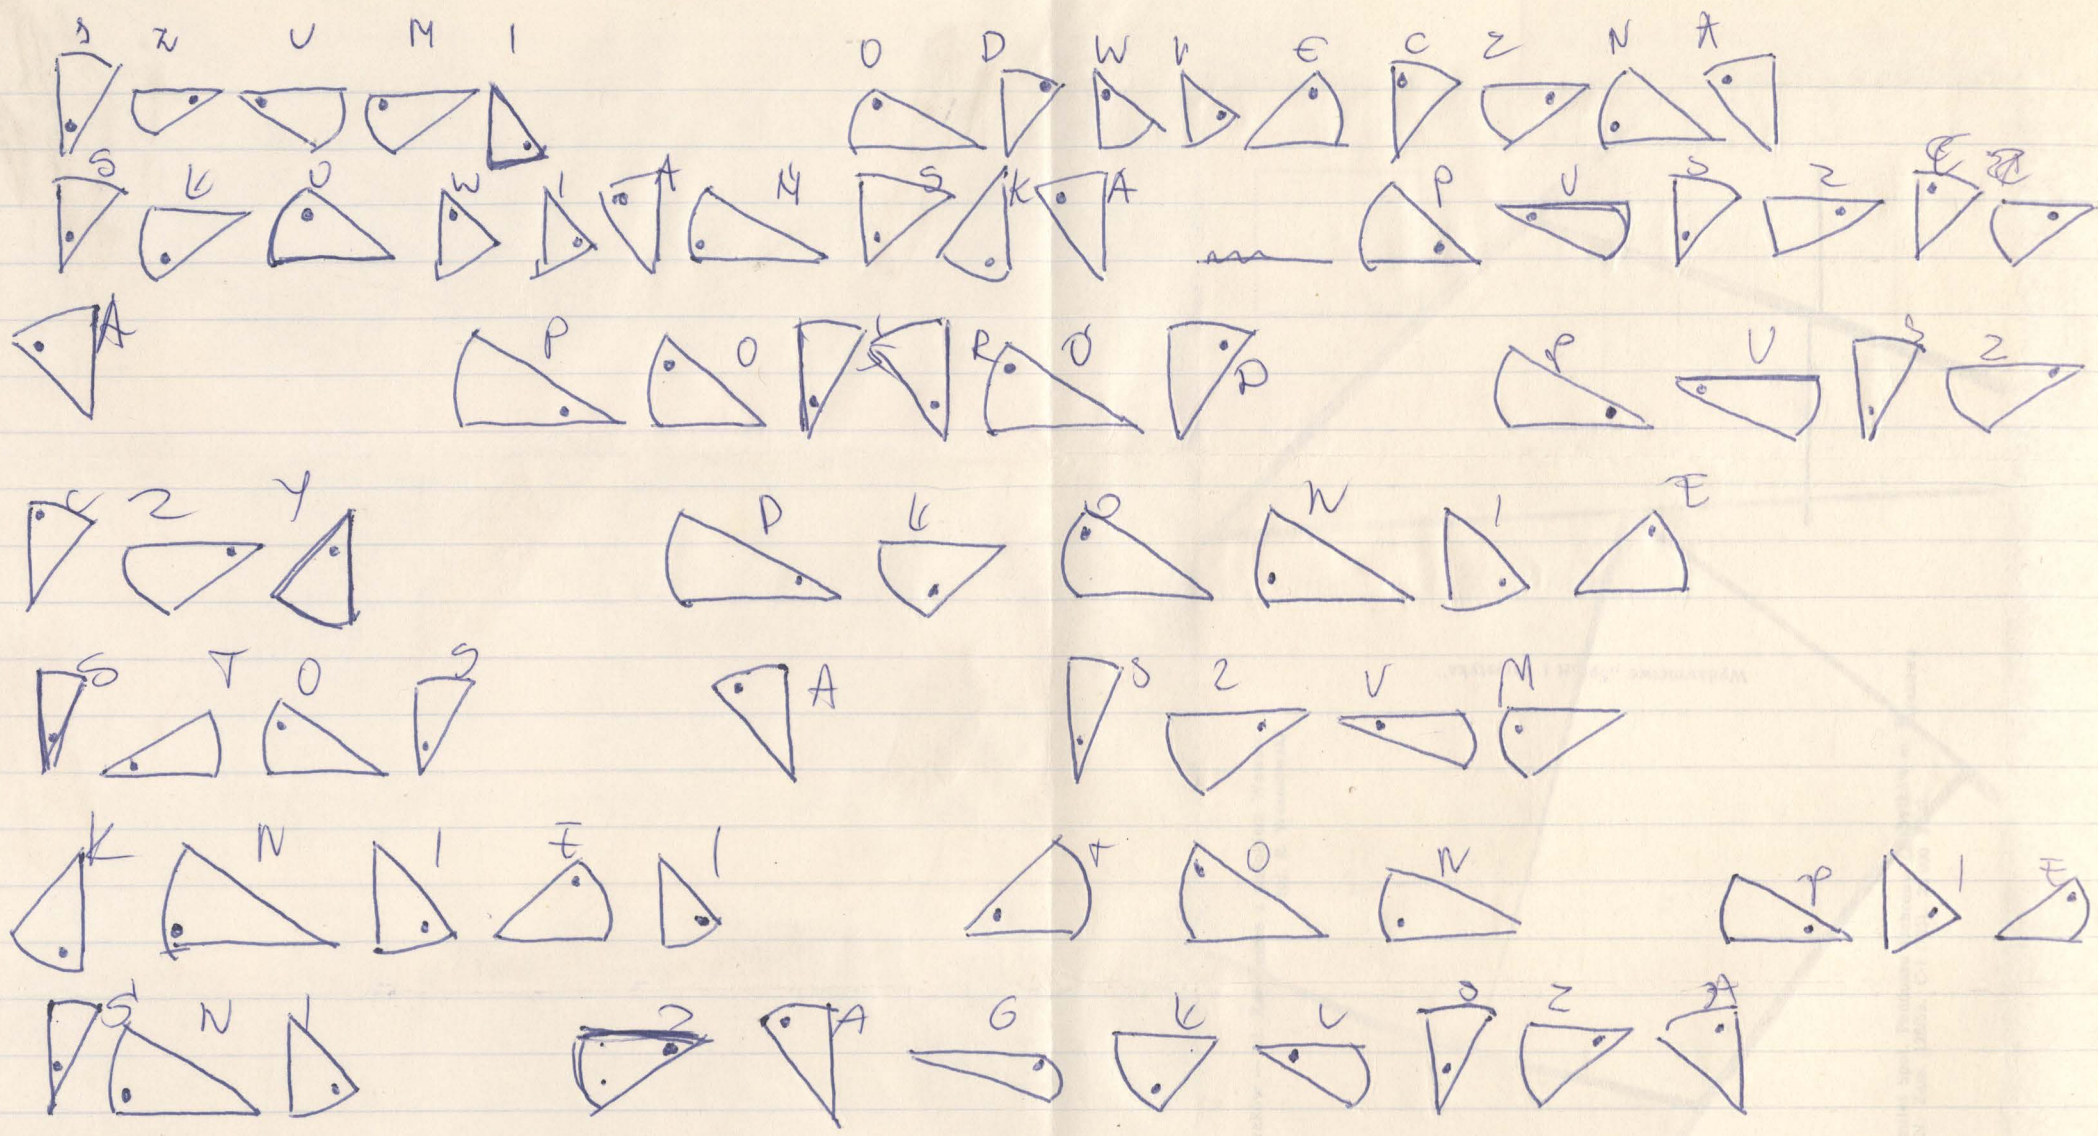 SZUMI ODWIECZNA
SKOWIAMSKA PUSZCZ
A POŚRÓD PUSZ
CZY PŁONIE
STOS A SZUM
KNIEI TON PIE
ŚNI ZAGŁUSZA